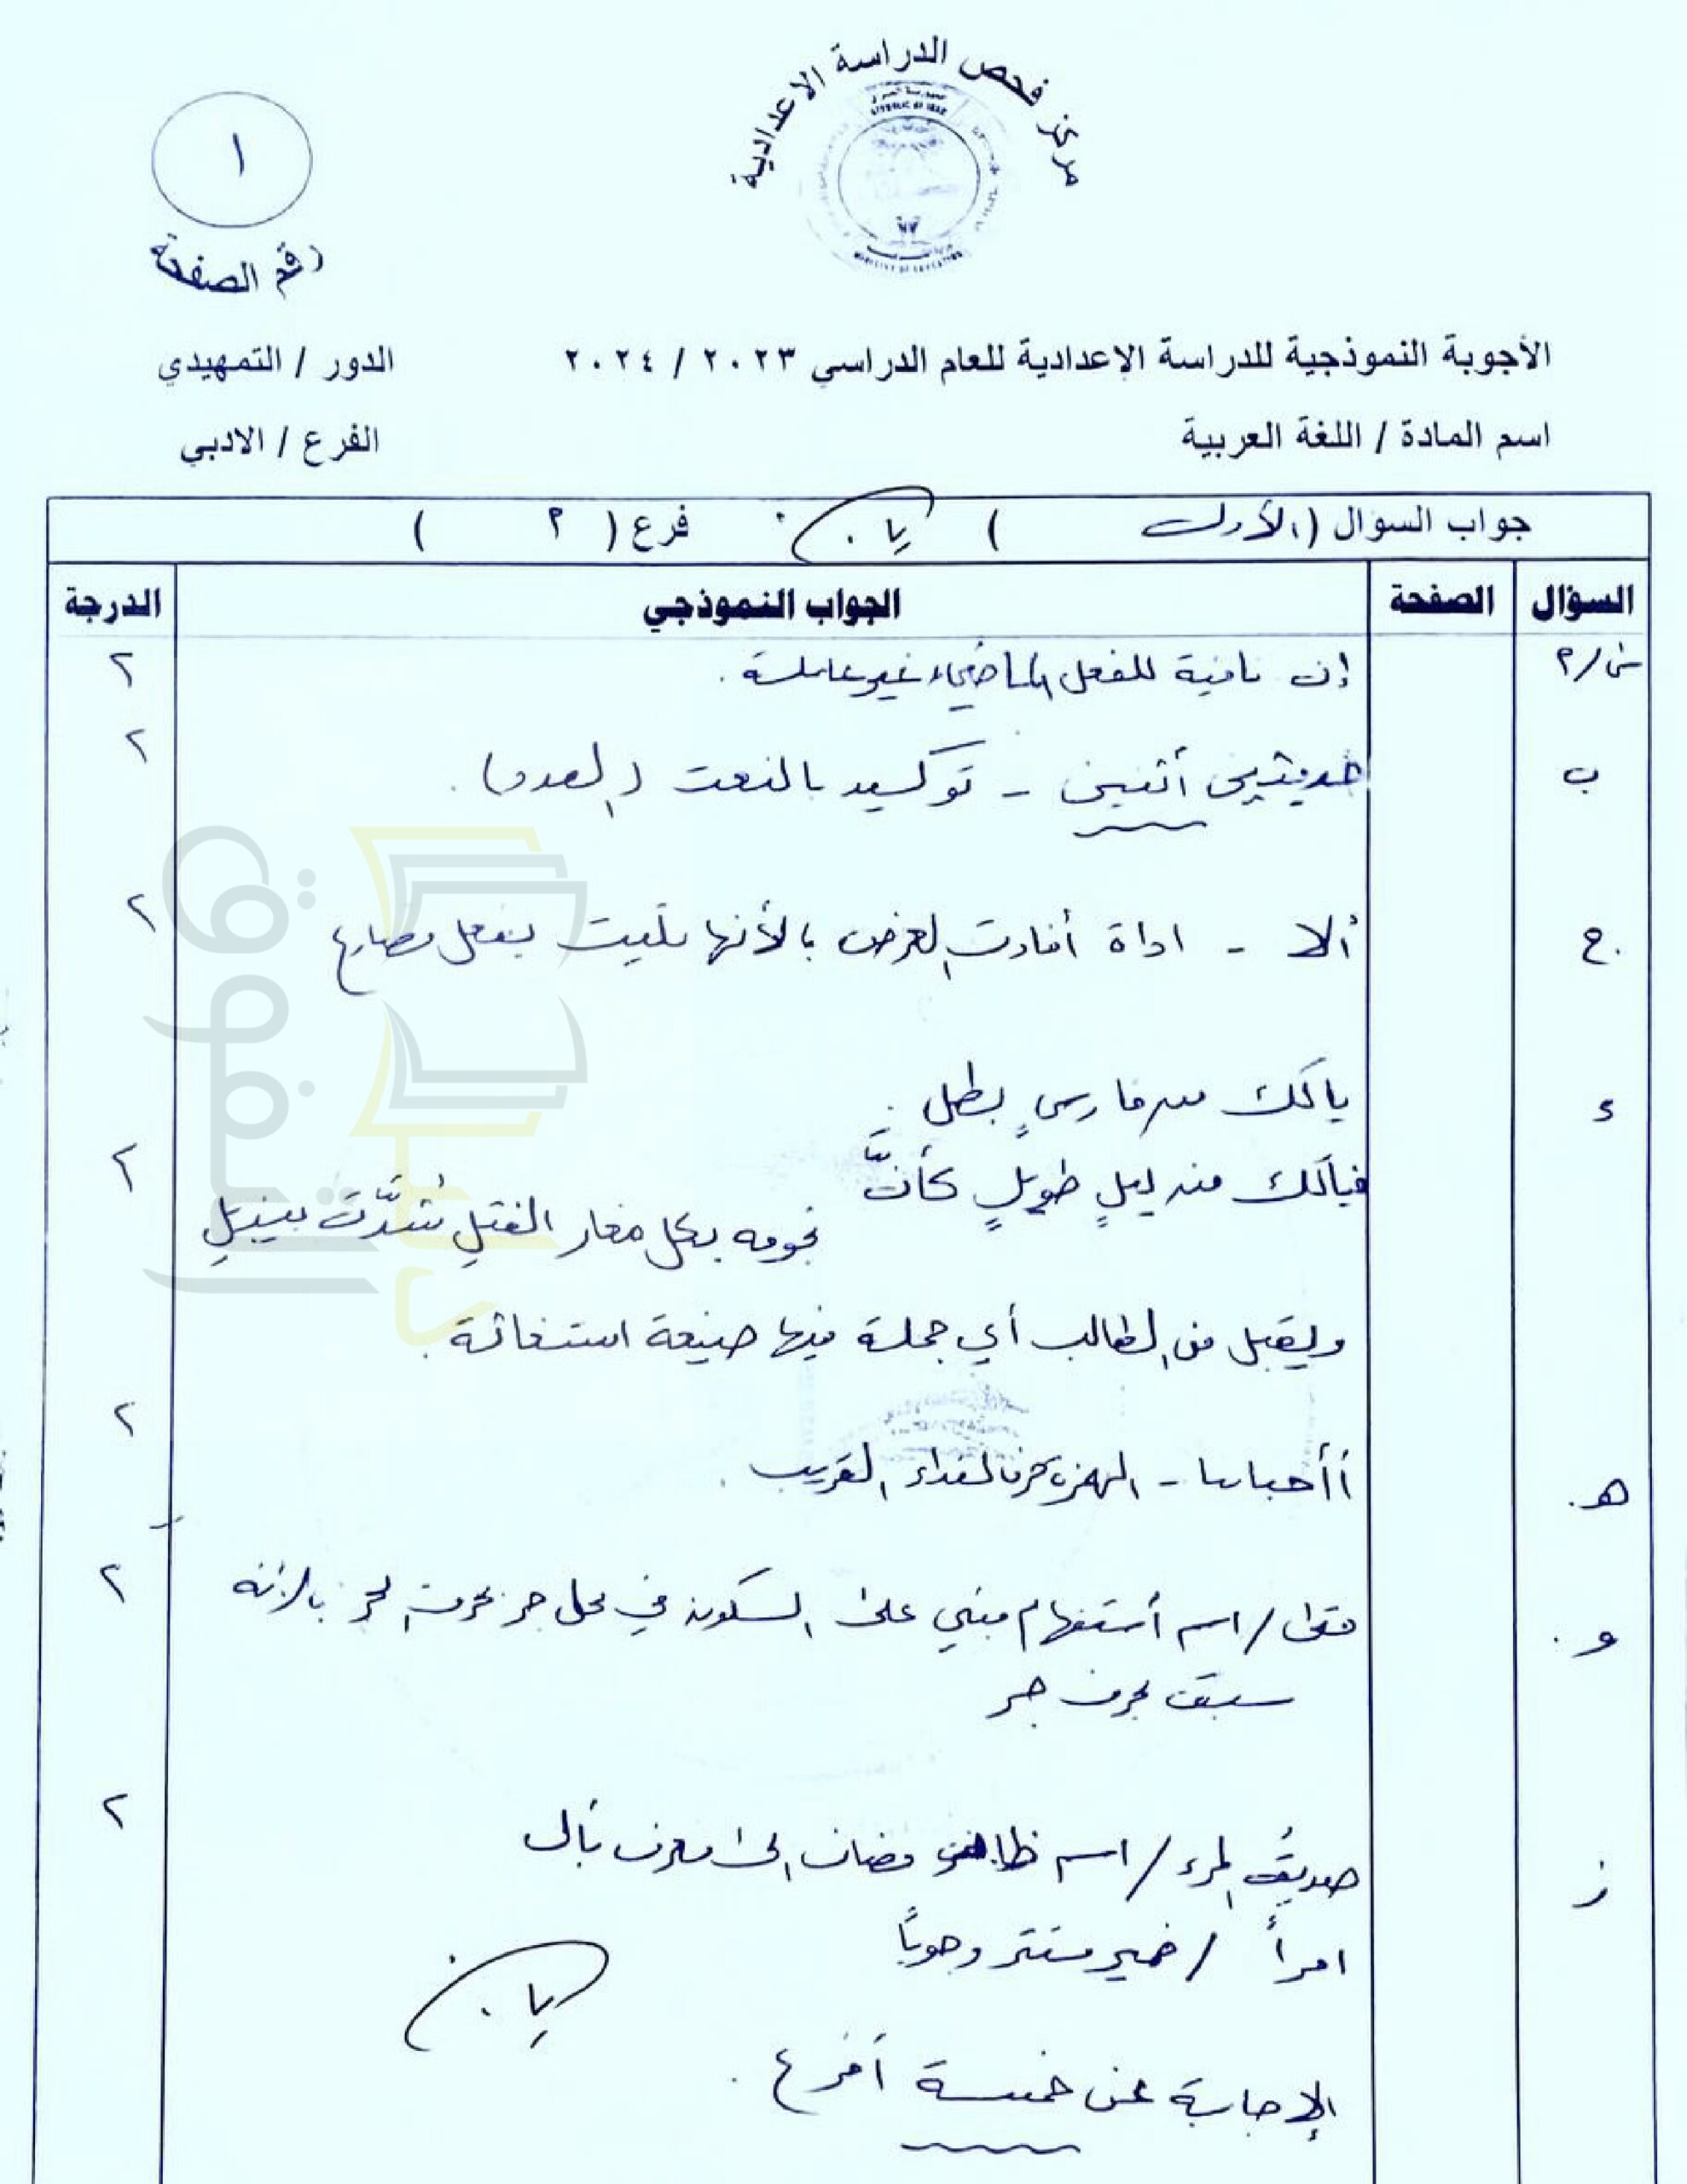 مركز فحص الدراسة الاعدادية
١
رقم الصفحة
الأجوبة النموذجية للدراسة الإعدادية للعام الدراسي ٢٠٢٣ / ٢٠٢٤
الدور / التمهيدي
اسم المادة / اللغة العربية
الفرع / الادبي
جواب السؤال (الأول) فرع ( ٢ )
السؤال الصفحة الجواب النموذجي الدرجة
إن نافية للفعل الماضي غير عاملة . ٢
ب اثنين - توكيد بالنعت (العدد) . ٢
ج. ألا - اداة أفادت العرض لأنها تليت بفعل مضارع ٢
د يالك من فارسٍ بطل .
فيالك من ليلٍ طويلٍ كأنَّ ٢
نجومه بكل مغار الفتل شُدَّت بيذبلِ
ويقبل من الطالب أي جملة فيها صيغة استغاثة .
هـ. أأحبابنا - الهمزة حرف لنداء القريب . ٢
و. متى / اسم أستفهام مبني على السكون في محل جر بحرف الجر لأنه ٢
سبق بحرف جر
ز صديقُ المرء / اسم ظاهر مضاف الى معرف بأل ٢
امرأً / ضمير مستتر وجوباً
الإجابة عن خمسة أفرع .
دار التفوق